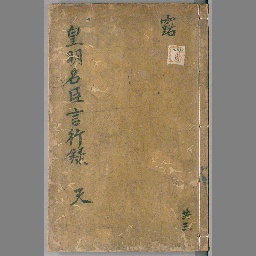 露
皇明名臣言行錄 天
共三